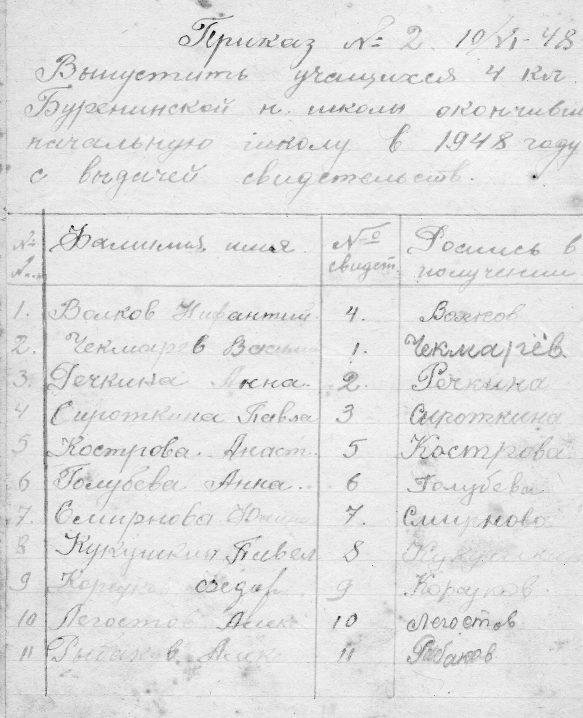 Приказ № 2. 10/VI-48
Выпустить учащихся 4 кл.
Буренинской н. школы окончивш
начальную школу в 1948 году
с выдачей свидетельств.
№ Фамилия, имя № свидет. Роспись в получении
1. Волков Нифантий 4. Волков
2. Чекмарев 1. Чекмарёв
3. Речкина Анна 2. Речкина
4 Сироткина Павла 3 Сироткина
5 Кострова Анаст. 5 Кострова
6 Голубева Анна. 6 Голубева
7. Смирнова 7. Смирнова
8 Кукушкин Павел 8
9 9
10 Легостов Алик 10 Легостов
11 Рыбаков Алик 11 Рыбаков